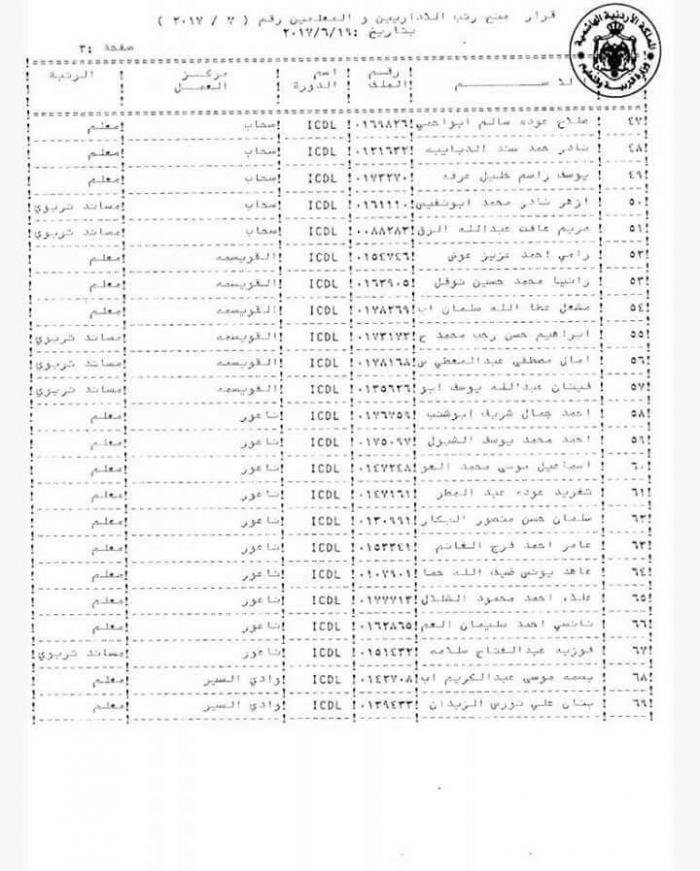 قرار منح رتب للاداريين و المعلمين رقم ( ٧ / ٢٠١٧ )
بتاريخ :٢٠١٧/٦/١٩
صفحة :٣
المملكة الأردنية الهاشمية
وزارة التربية والتعليم
الاســـم رقم الملف اسم الدورة مركز العمل الرتبة
٤٧ صلاح عوده سالم ٠١٦٩٨٢٦ ICDL سحاب معلم
٤٨ نادر حمد سند الذيابيب ٠١٢١٦٣٢ ICDL سحاب معلم
٤٩ يوسف راسم خليل عرفه ٠١٧٣٢٧٠ ICDL سحاب معلم
٥٠ ازهر نادر محمد ٠١٦١١١٠ ICDL سحاب مساند تربوي
٥١ مريم عبدالله الزق ٠٠٨٨٢٨٣ ICDL سحاب مساند تربوي
٥٢ رامي احمد عزيز ٠١٥٤٧٤٦ ICDL القويسمه معلم
٥٣ رانيا محمد حسين نوفل ٠١٦٣٩٠٥ ICDL القويسمه معلم
٥٤ مشعل عطا الله سلمان اب ٠١٧٨٢٦٩ ICDL القويسمه معلم
٥٥ ابراهيم حسن رجب محمد ح ٠١٧٣١٧٣ ICDL القويسمه مساند تربوي
٥٦ امال مصطفى عبدالمعطي س ٠١٧٨١٦٨ ICDL القويسمه مساند تربوي
٥٧ عبدالله يوسف ابو ٠١٣٥٦٢٦ ICDL القويسمه مساند تربوي
٥٨ احمد جمال شريف ابوشنب ٠١٧٦٧٥٩ ICDL ناعور معلم
٥٩ احمد محمد يوسف الشبول ٠١٧٥٠٩٧ ICDL ناعور معلم
٦٠ اسماعيل موسى محمد العو ٠١٤٧٢٤٨ ICDL ناعور معلم
٦١ تغريد عوده عبد المطر ٠١٤٧١٦١ ICDL ناعور معلم
٦٢ سلمان حسن منصور البكار ٠١٣٠٩٩١ ICDL ناعور معلم
٦٣ عامر احمد فرج الغانم ٠١٥٣٣٤١ ICDL ناعور معلم
٦٤ عاهد يونس ضيف الله حما ٠١٠٧٩٠١ ICDL ناعور معلم
٦٥ علاء احمد محمود الشلال ٠١٧٧٧١٣ ICDL ناعور معلم
٦٦ نانسي احمد سليمان العم ٠١٦٣٨٦٥ ICDL ناعور معلم
٦٧ فوزيه عبدالفتاح سلامه ٠١٥١٤٣٢ ICDL ناعور مساند تربوي
٦٨ بسمه موسى عبدالكريم اب ٠١٤٢٧٠٨ ICDL وادي السير معلم
٦٩ بنان علي نوري الزيدان ٠١٣٩٤٣٣ ICDL وادي السير معلم